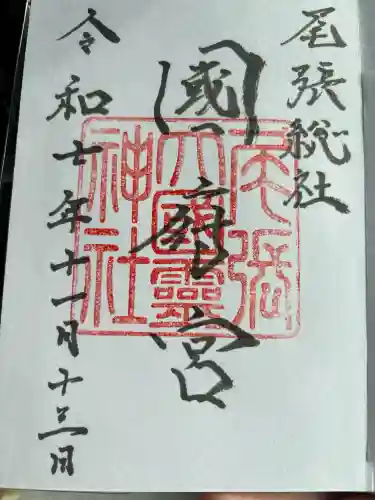 尾張総社
國府宮
令和七年十一月十三日
尾張大國靈神社